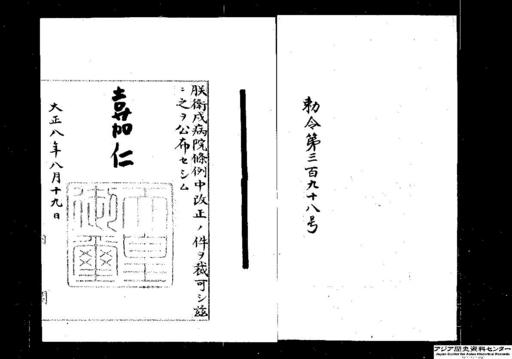 勅令第三百九十八号
朕衛戍病院條例中改正ノ件ヲ裁可シ茲
ニ之ヲ公布セシム
嘉仁
天皇御璽
大正八年八月十九日
アジア歴史資料センター
Japan Center for Asian Historical Records